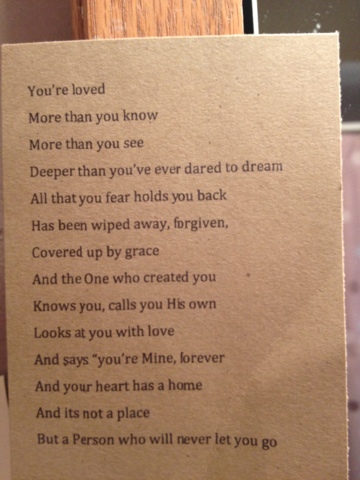 You're loved
More than you know
More than you see
Deeper than you've ever dared to dream
All that you fear holds you back
Has been wiped away, forgiven,
Covered up by grace
And the One who created you
Knows you, calls you His own
Looks at you with love
And says "you're Mine, forever
And your heart has a home
And its not a place
But a Person who will never let you go